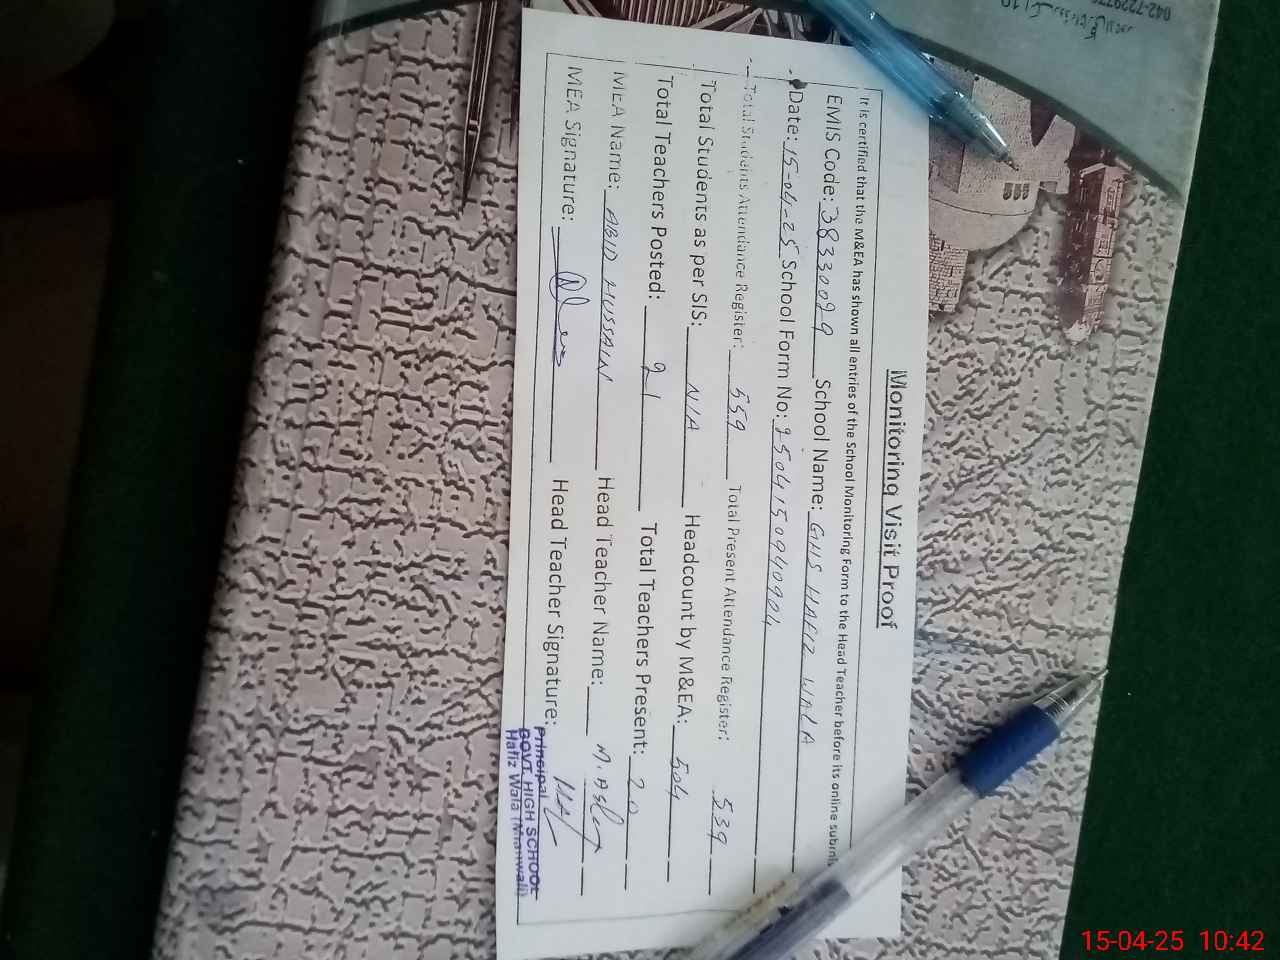 Monitoring Visit Proof
It is certified that the M&EA has shown all entries of the School Monitoring Form to the Head Teacher before its online submi
EMIS Code: 38330029 School Name: GHS HAFIZ WALA
Date: 15-04-25 School Form No: 2504150940904
Total Students Attendance Register: 559 Total Present Attendance Register: 539
Total Students as per SIS: N/A Headcount by M&EA: 504
Total Teachers Posted: 21 Total Teachers Present: 20
MEA Name: ABID HUSSAIN Head Teacher Name: M. Aslam
MEA Signature: Head Teacher Signature:
Principal
GOVT. HIGH SCHOOL
Hafiz Wala (Mianwali)
15-04-25 10:42